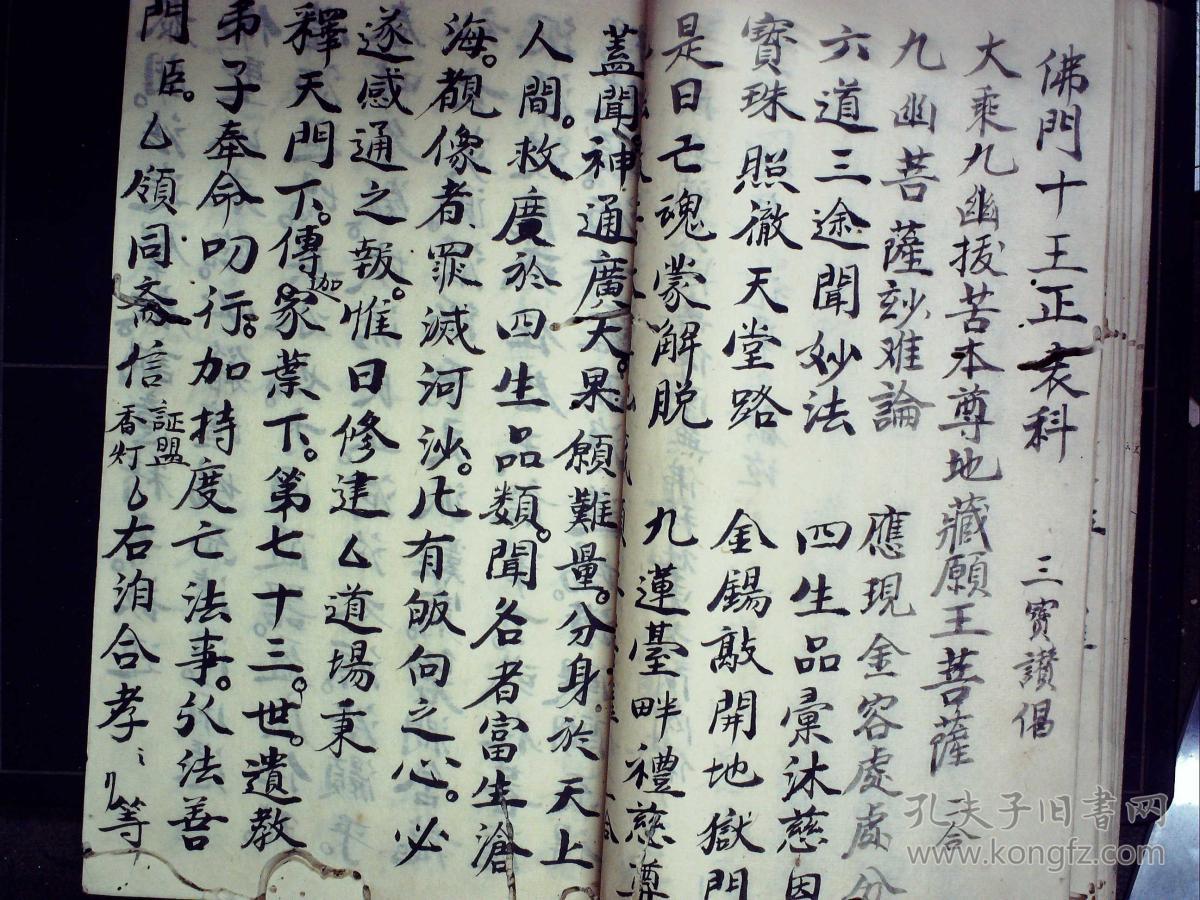 佛門十王正衣科 三寶讃偈
大乘九幽拔苦本尊地藏願王菩薩 仝
九幽菩薩玅难論 應現金容處處分
六道三途聞妙法 四生品彙沐慈因
寶珠照徹天堂路 金錫敲開地獄門
是日亡魂蒙解脱 九蓮臺畔禮慈尊
蓋聞神通廣大。果願難量。分身於天上
人間。救廣於四生品類。聞名者富生滄
海。覩像者罪滅河沙。凡有皈向之心。必
遂感通之報。惟日修建厶道場秉
釋天門下。傳迦家葉下。第七十三。世。遺教
弟子奉命叨行。加持度亡法事。弘法善
門臣。厶領同斋信証盟香灯厶右洎合孝等
孔夫子旧書网
www.kongfz.com